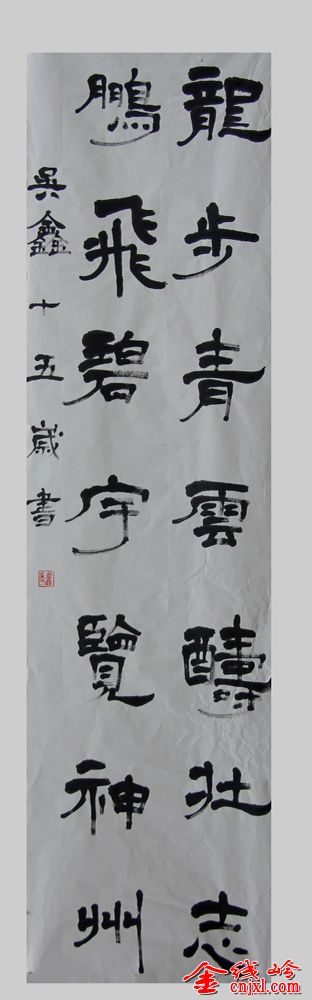 龍步青雲醻壯志
鵬飛碧宇覽神州
吳鑫十五歲書
金线岭
cnjxl.com